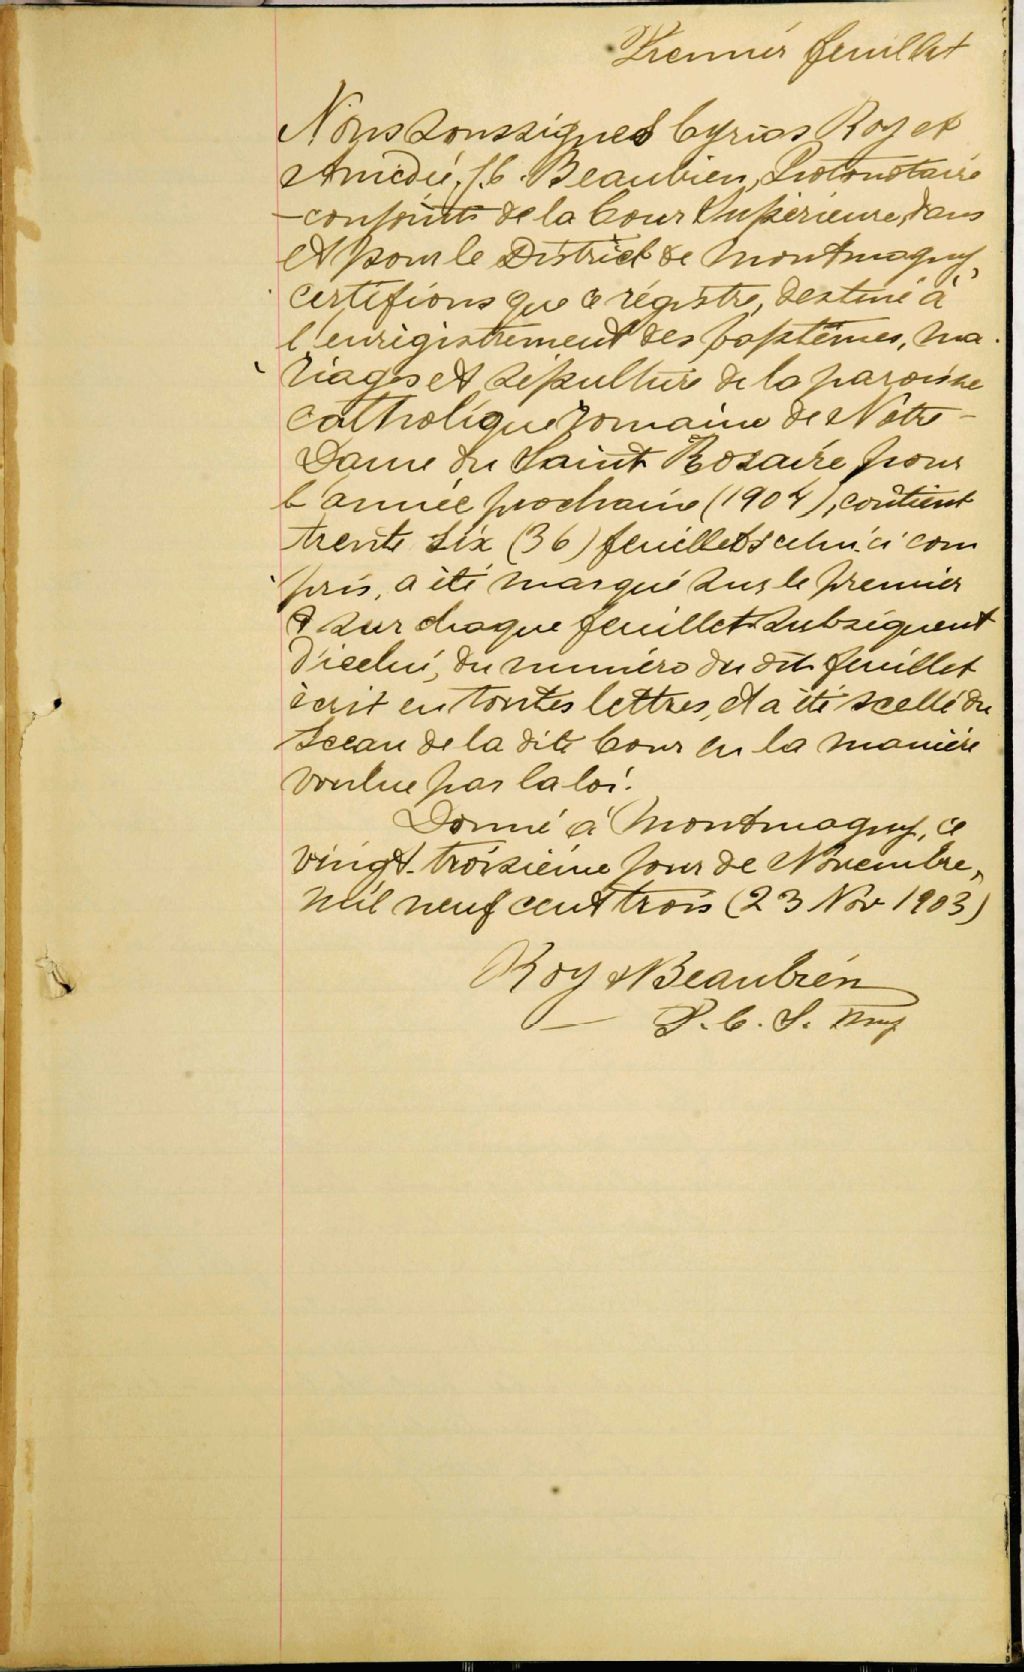 Premier feuillet
Nous soussignés Cyrias Roy et
Amédé J. C. Beaubien, Protonotaire
conjoints de la Cour Supérieure, dans
et pour le District de Montmagny,
certifions que ce régistre, destiné à
l'enrigistrement des baptêmes, ma
riages et sépulture de la paroisse
catholique romaine de Notre-
Dame du Saint Rosaire pour
l'année prochaine (1904), contient
trente six (36) feuillets celui-ci com
pris, a été marqué sur le premier
& sur chaque feuillet subséquent
d'icelui, du numéro du dit feuillet
écrit en toutes lettres, et a été scellé du
Sceau de la dite Cour en la manière
voulue par la loi.
Donné à Montmagny, ce
vingt-troisième jour de Novembre,
mil neuf cent trois (23 Nov 1903)
Roy & Beaubien
P. C. S. Mny